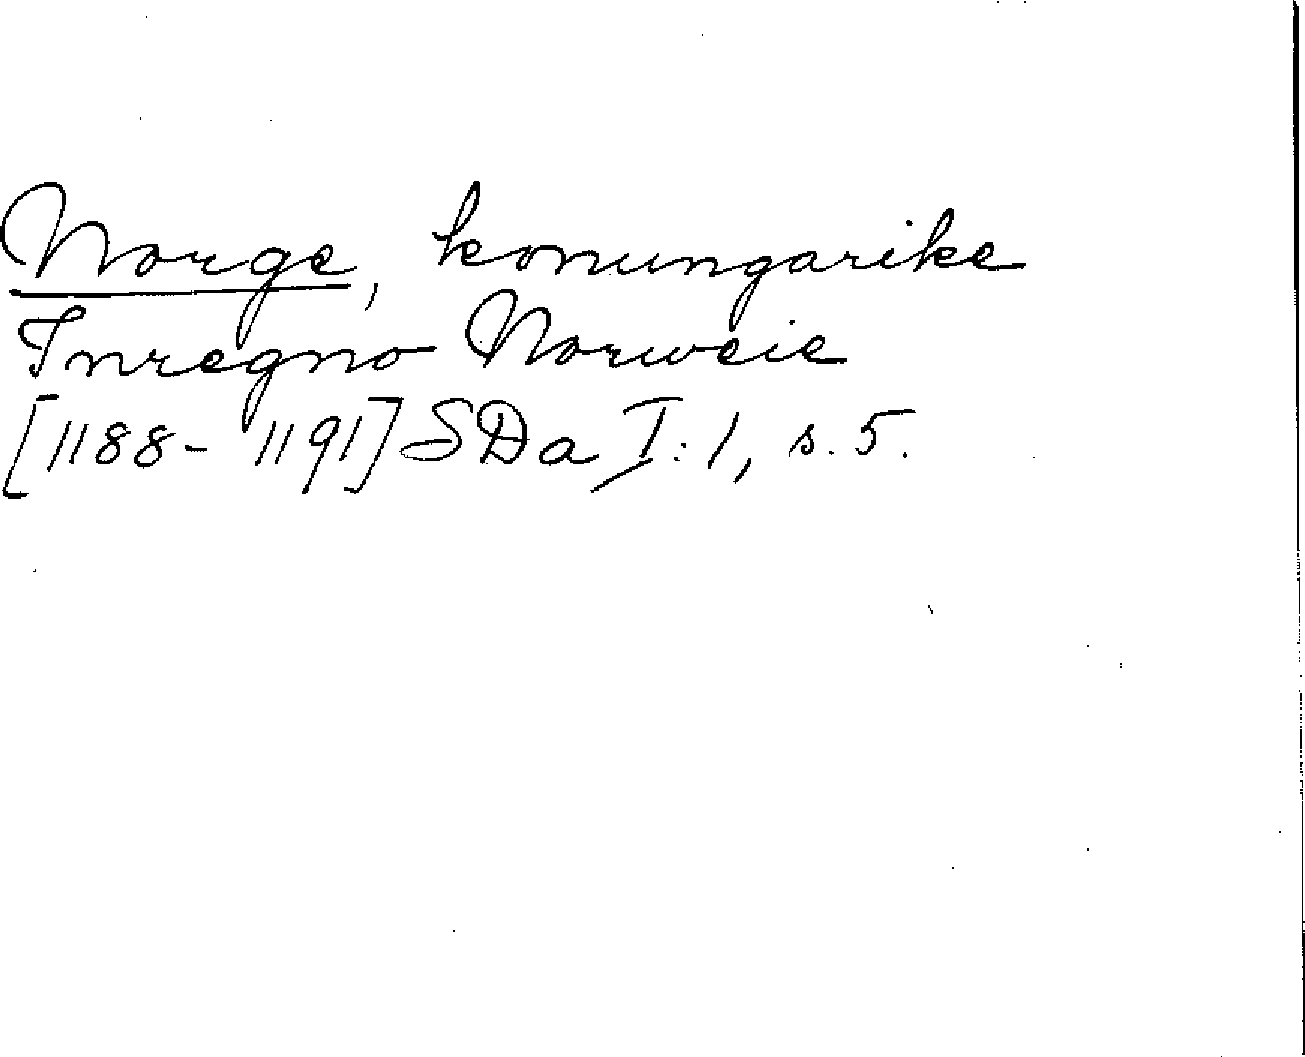 Norge, konungarike
Inregno Norweie
[1188-1191] SDa I:1, s. 5.